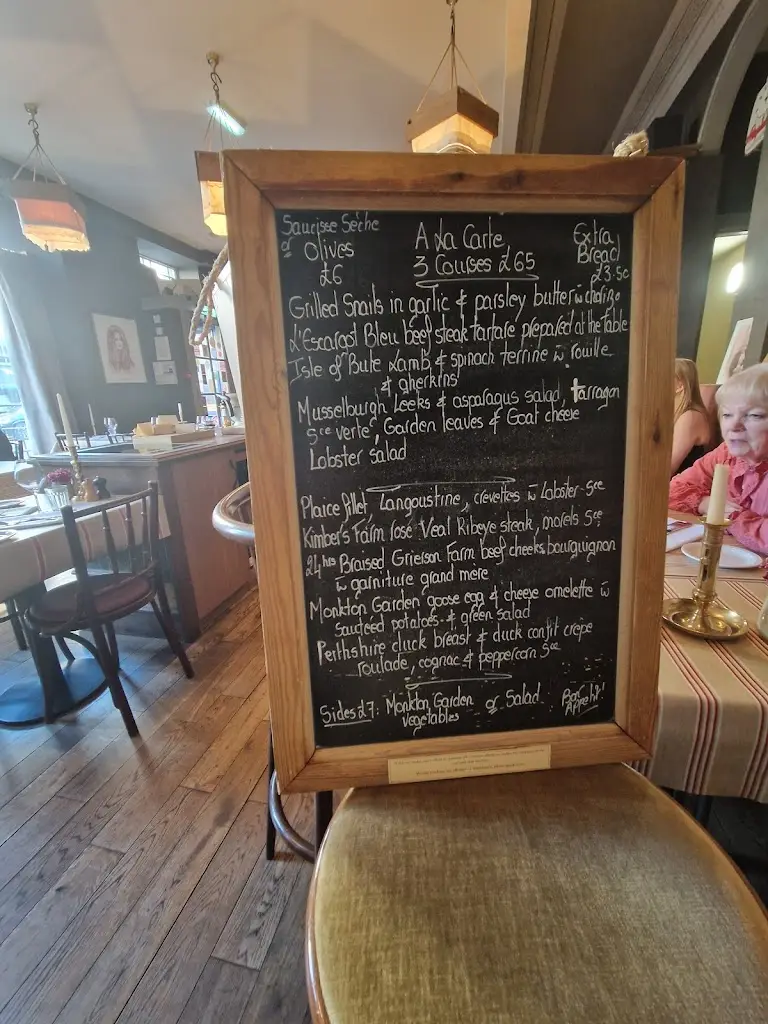 Saucisse Sèche
or
Olives
£6
A La Carte
3 Courses £65
Extra
Bread
£3.50
Grilled Snails in garlic & parsley butter w̄ chorizo
L'Escargot Bleu beef steak tartare prepared at the table
Isle of Bute Lamb & spinach terrine w̄ rouille
& gherkins
Musselburgh Leeks & asparagus salad, tarragon
sce verte, Garden leaves & Goat cheese
Lobster salad
Plaice fillet Langoustine, crevettes w̄ Lobster sce
Kimber's Farm rosé Veal Ribeye steak, morels sce
24hrs Braised Grierson Farm beef cheeks bourguignon
w̄ garniture grand mere
Monkton Garden goose egg & cheese omelette w̄
sauteed potatoes & green salad
Perthshire duck breast & duck confit crepe
roulade, cognac & peppercorn sce
Sides £7: Monkton Garden or Salad
vegetables
Bon